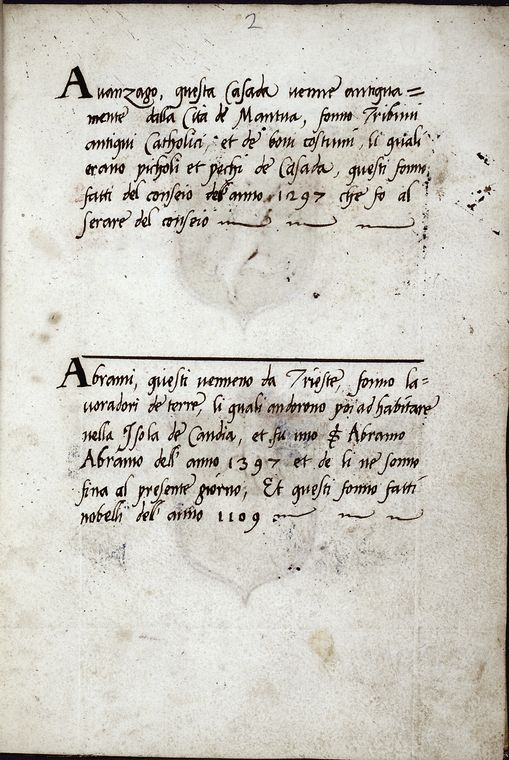 2
Avanzago, questa Casada venne antiqua=
mente dalla Cità de Mantua, fonno Tribuni
antiqui Catholici, et de boni costumi, li quali
erano picholi et pochi de Casada, questi fonno
fatti del conseio del anno 1297 che fo al
serare del conseio
Abrami, questi venneno da Trieste, fonno la=
voradori de terre, li quali andorono poi ad habitare
nella Isola de Candia, et fu uno Abramo
Abramo dell' anno 1397 et de li ne sonno
fina al presente giorno, Et questi fonno fatti
nobelli dell' anno 1109